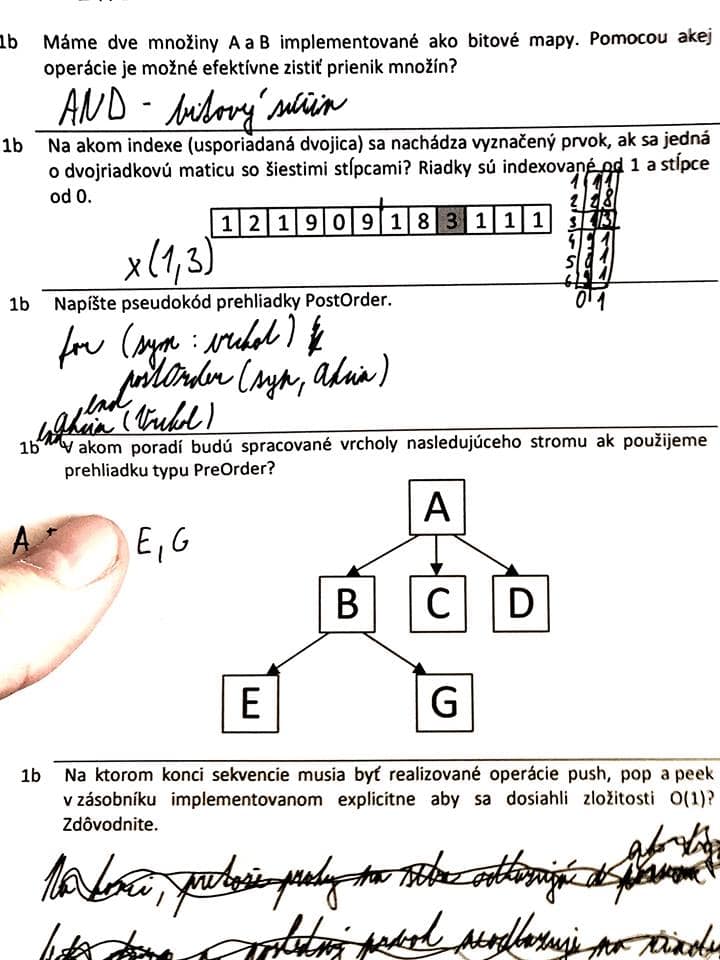 1b Máme dve množiny A a B implementované ako bitové mapy. Pomocou akej
operácie je možné efektívne zistiť prienik množín?
AND - bitový súčin
1b Na akom indexe (usporiadaná dvojica) sa nachádza vyznačený prvok, ak sa jedná
o dvojriadkovú maticu so šiestimi stĺpcami? Riadky sú indexované od 1 a stĺpce
od 0.
1 2 1 9 0 9 1 8 3 1 1 1
x (1,3)
0 1
1b Napíšte pseudokód prehliadky PostOrder.
for (syn : vrchol)
postOrder (syn, akcia)
end
akcia (vrchol)
end
1b V akom poradí budú spracované vrcholy nasledujúceho stromu ak použijeme
prehliadku typu PreOrder?
A
A E, G
B C D
E G
1b Na ktorom konci sekvencie musia byť realizované operácie push, pop a peek
v zásobníku implementovanom explicitne aby sa dosiahli zložitosti O(1)?
Zdôvodnite.
Na konci, pretože prvky na seba odkazujú